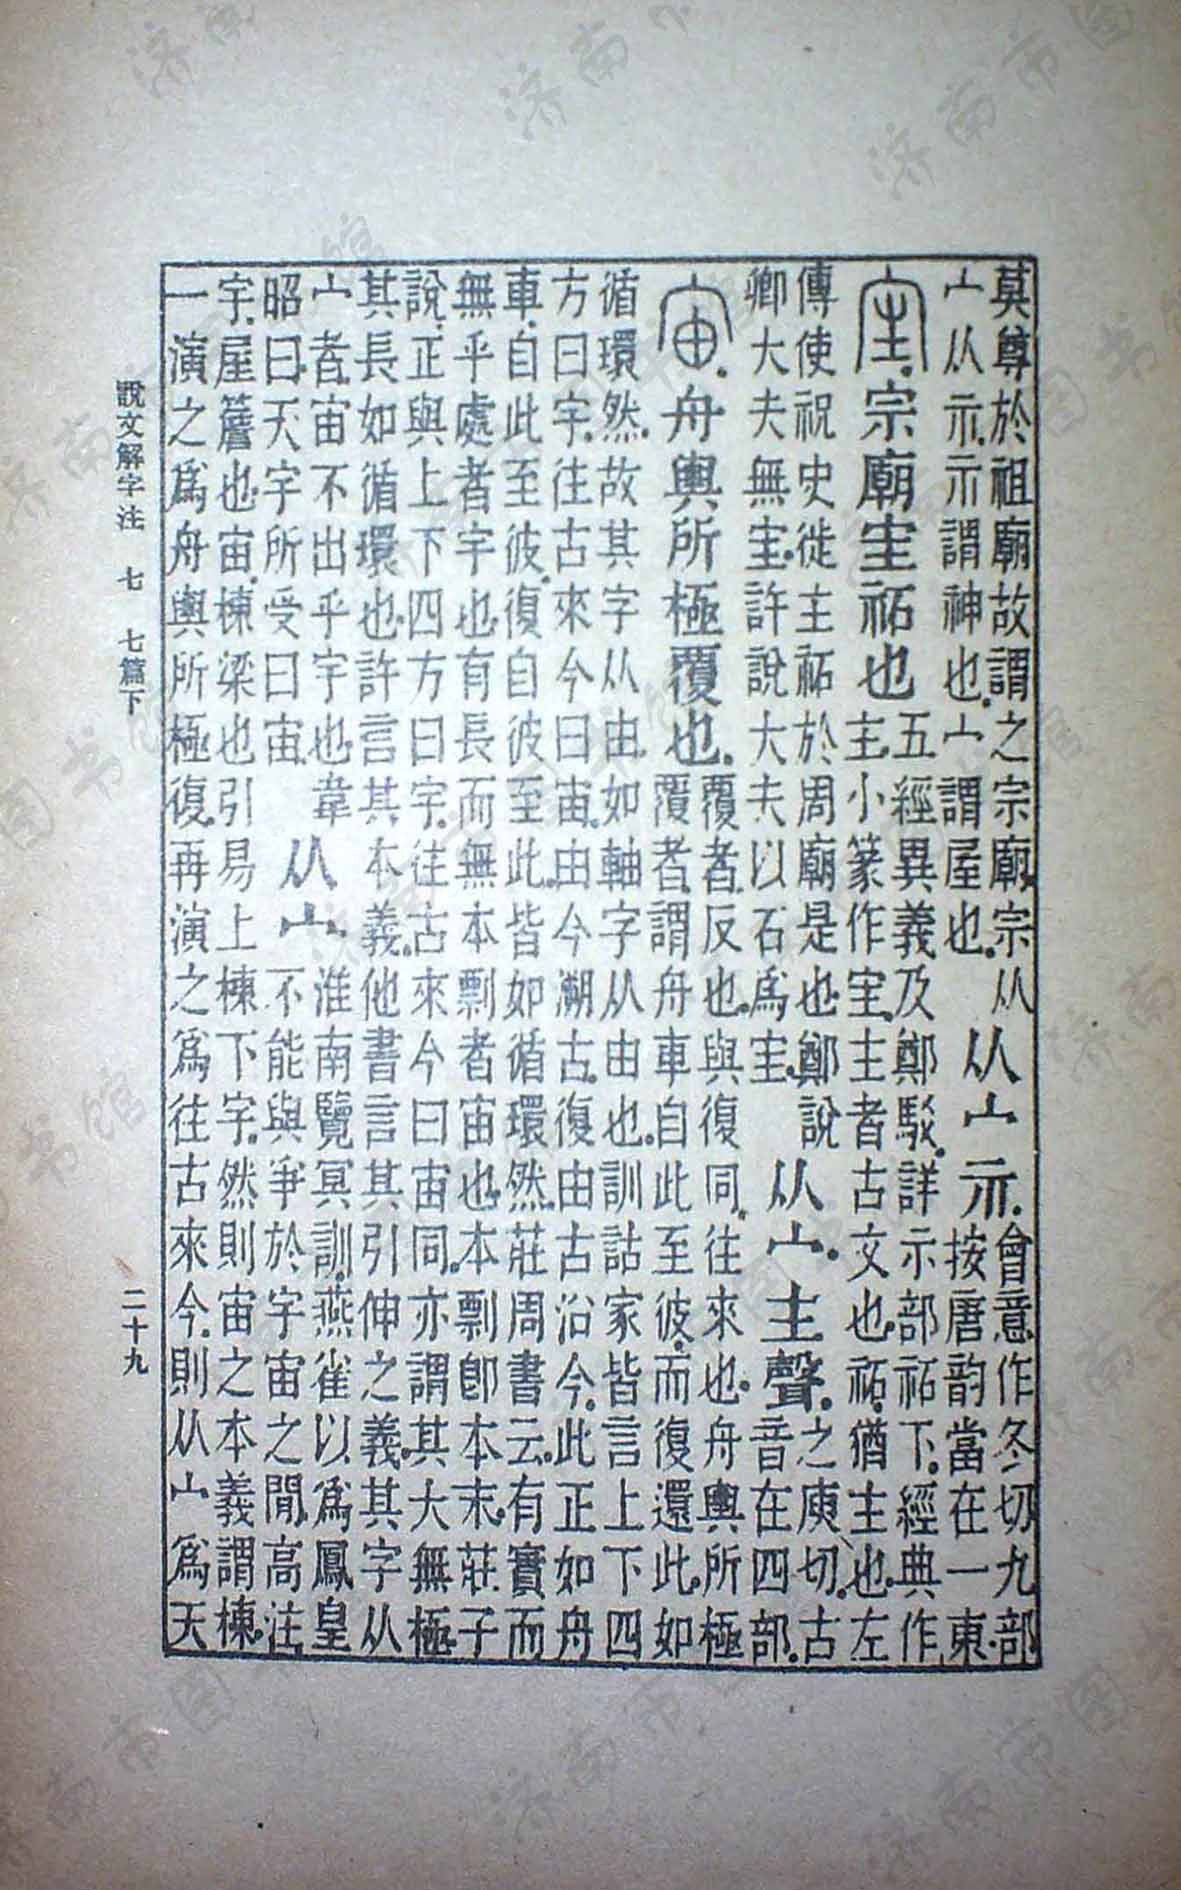 莫尊於祖廟故謂之宗廟。宗从
宀从示。示謂神也。宀謂屋也。
从宀示。
會意作冬切九部。
按唐韵當在一東。
宔。宗廟宔祏也
五經異義及鄭駁。詳示部祏下。經典作
主。小篆作宔。主者古文也。祏。猶主也。左
傳使祝史徙主祏於周廟是也。鄭說
卿大夫無宔。許說大夫以石爲宔。
从宀。主聲。
之庾切。古
音在四部。
宙。舟輿所極覆也。
覆者。反也。與復同。往來也。舟輿所極
覆者。謂舟車自此至彼。而復還此。如
循環然。故其字从由。如軸字从由也。訓詁家皆言上下四
方曰宇。往古來今曰宙。由今溯古。復由古沿今。此正如舟
車。自此至彼。復自彼至此。皆如循環然。莊周書云。有實而
無乎處者宇也。有長而無本剽者宙也。本剽卽本末。莊子
說。正與上下四方曰宇。往古來今曰宙同。亦謂其大無極
其長如循環也。許言其本義。他書言其引伸之義。其字从
宀者。宙不出乎宇也。韋
昭曰。天宇所受曰宙。
从宀。
淮南覽冥訓。燕雀以爲鳳皇
不能與爭於宇宙之閒。高注
宇。屋簷也。宙。棟梁也。引易上棟下宇。然則宙之本義謂棟。
一演之爲舟輿所極復。再演之爲往古來今。則从宀爲天
說文解字注 七 七篇下
二十九